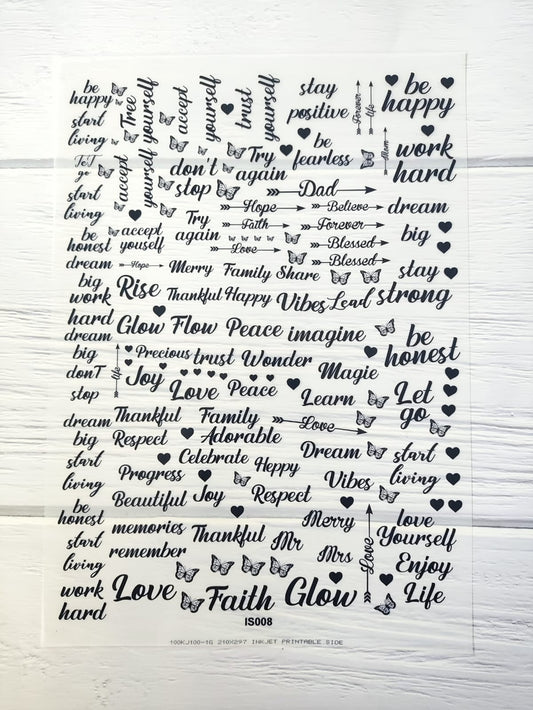 be
happy
start
living
Tree
accept
yourself
yourself
accept
yourself
trust
yourself
stay
positive
Forever
life
be
happy
To T
go
start
living
don't
stop
Try
again
be
fearless
Mom
work
hard
Dad
Hope
Believe
dream
Faith
Forever
be
honest
accept
youself
Try
again
Love
Blessed
Blessed
big
dream
Hope
Merry
Family
Share
stay
strong
big
work
hard
Rise
Thankful
Happy
Vibes
Lead
Glow
Flow
Peace
imagine
dream
big
donT
stop
life
Precious
trust
Wonder
Magie
be
honest
Joy
Love
Peace
Learn
Let
go
dream
big
Thankful
Family
Love
Respect
Adorable
start
living
Celebrate
Heppy
Dream
start
living
Progress
Vibes
Beautiful
Joy
Respect
be
honest
start
living
memories
remember
Thankful
Mr
Merry
Mrs
Love
love
Yourself
Enjoy
Life
work
hard
Love
Faith
Glow
IS008
100KJ100-1G 210X297 INKJET PRINTABLE SIDE